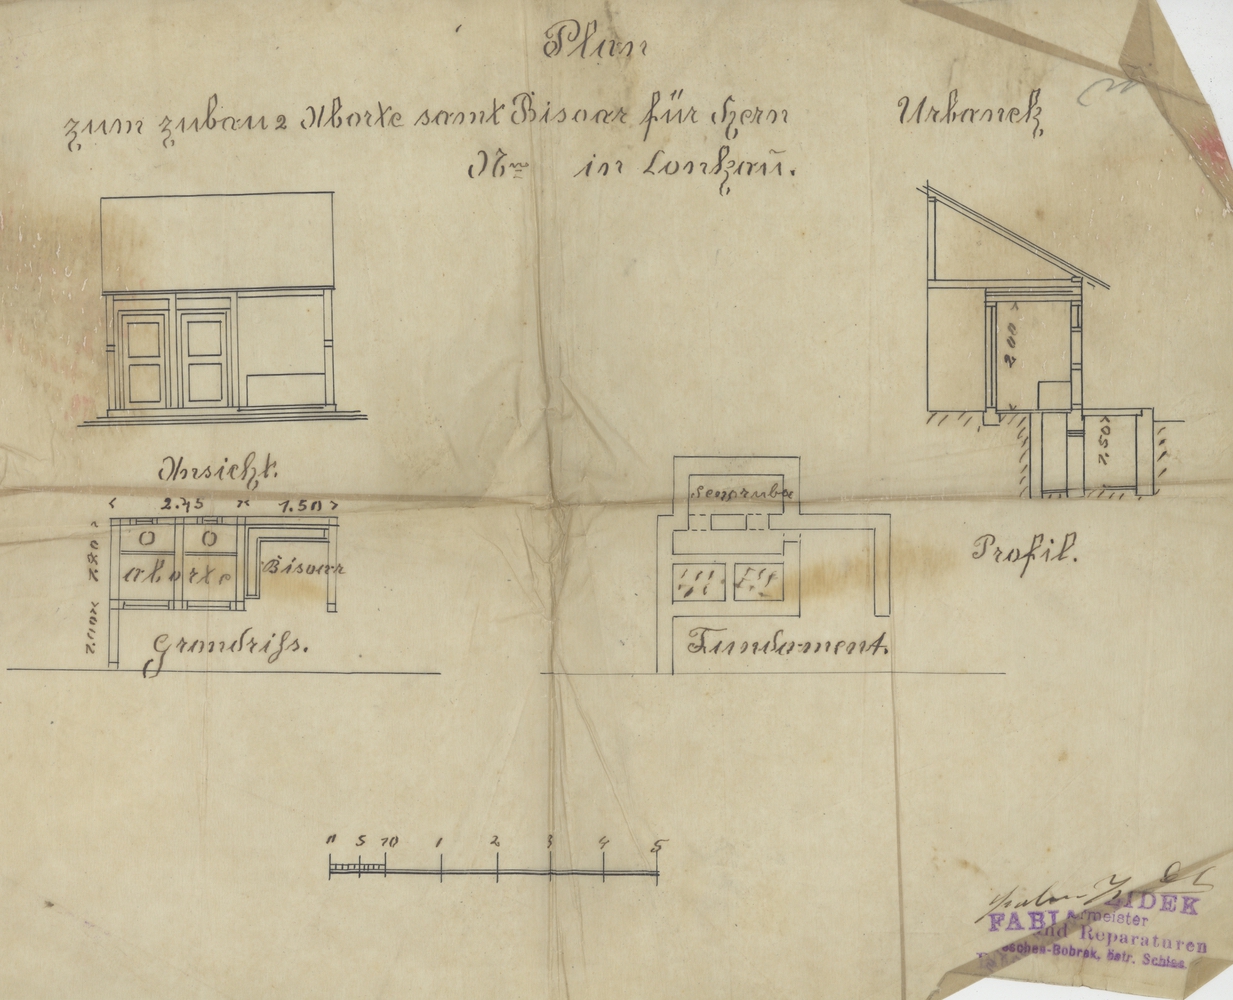 Plan
zum zubau 2 Aborte samt Bisoar für Hern Urbanek
Nro in Lonkau.
Ansicht.
2.45 1.50
Aborte
Bisoarr
2.00
Grondriss.
Sengrube
Fundament.
2.00
2.50
Profil.
0 5 10 1 2 3 4 5
FABI ZIDEK
rmeister
und Reparaturen
eschen-Bobrek, östr. Schles